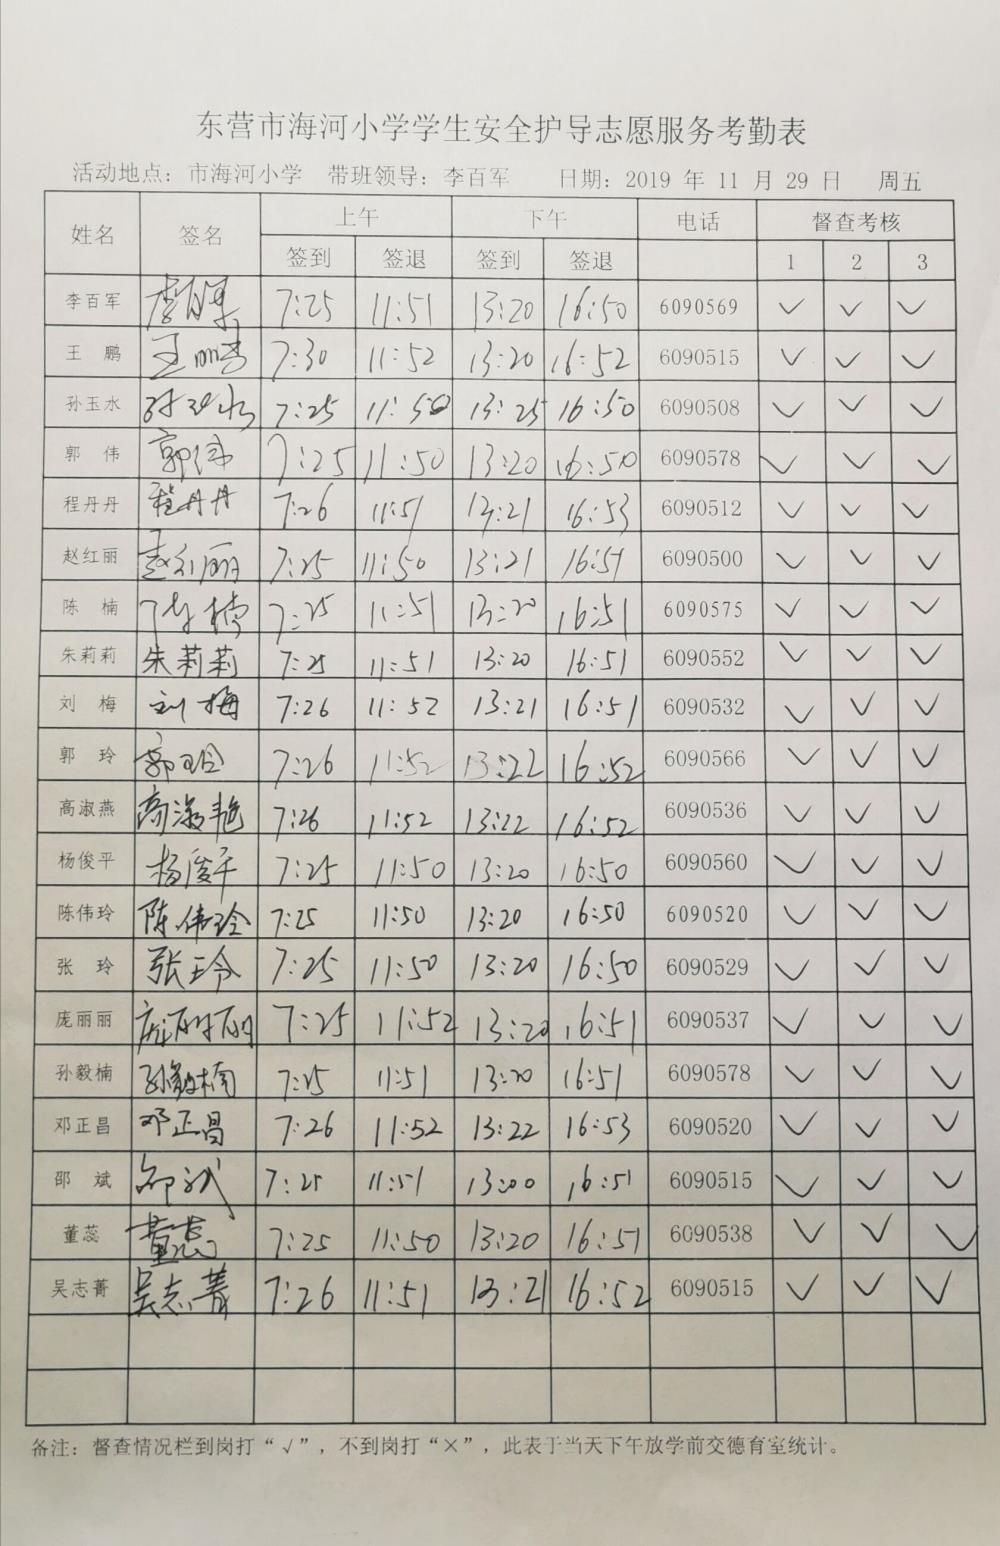 东营市海河小学学生安全护导志愿服务考勤表
活动地点：市海河小学 带班领导：李百军 日期：2019 年 11 月 29 日 周五
姓名 签名 上午 下午 电话 督查考核
签到 签退 签到 签退 1 2 3
李百军 李百军 7:25 11:51 13:20 16:50 6090569 ✓ ✓ ✓
王 鹏 王鹏 7:30 11:52 13:20 16:52 6090515 ✓ ✓ ✓
孙玉水 孙玉水 7:25 11:50 13:25 16:50 6090508 ✓ ✓ ✓
郭 伟 郭伟 7:25 11:50 13:20 16:50 6090578 ✓ ✓ ✓
程丹丹 程丹丹 7:26 11:51 13:21 16:53 6090512 ✓ ✓ ✓
赵红丽 赵红丽 7:25 11:50 13:21 16:51 6090500 ✓ ✓ ✓
陈 楠 陈楠 7:25 11:51 13:20 16:51 6090575 ✓ ✓ ✓
朱莉莉 朱莉莉 7:25 11:51 13:20 16:51 6090552 ✓ ✓ ✓
刘 梅 刘梅 7:26 11:52 13:21 16:51 6090532 ✓ ✓ ✓
郭 玲 郭玲 7:26 11:52 13:22 16:52 6090566 ✓ ✓ ✓
高淑燕 高淑艳 7:26 11:52 13:22 16:52 6090536 ✓ ✓ ✓
杨俊平 杨俊平 7:25 11:50 13:20 16:50 6090560 ✓ ✓ ✓
陈伟玲 陈伟玲 7:25 11:50 13:20 16:50 6090520 ✓ ✓ ✓
张 玲 张玲 7:25 11:50 13:20 16:50 6090529 ✓ ✓ ✓
庞丽丽 庞丽丽 7:25 11:52 13:20 16:51 6090537 ✓ ✓ ✓
孙毅楠 孙毅楠 7:25 11:51 13:20 16:51 6090578 ✓ ✓ ✓
邓正昌 邓正昌 7:26 11:52 13:22 16:53 6090520 ✓ ✓ ✓
邵 斌 邵斌 7:25 11:51 13:00 16:51 6090515 ✓ ✓ ✓
董蕊 董蕊 7:25 11:50 13:20 16:51 6090538 ✓ ✓ ✓
吴志菁 吴志菁 7:26 11:51 13:21 16:52 6090515 ✓ ✓ ✓
备注：督查情况栏到岗打“√”，不到岗打“×”，此表于当天下午放学前交德育室统计。